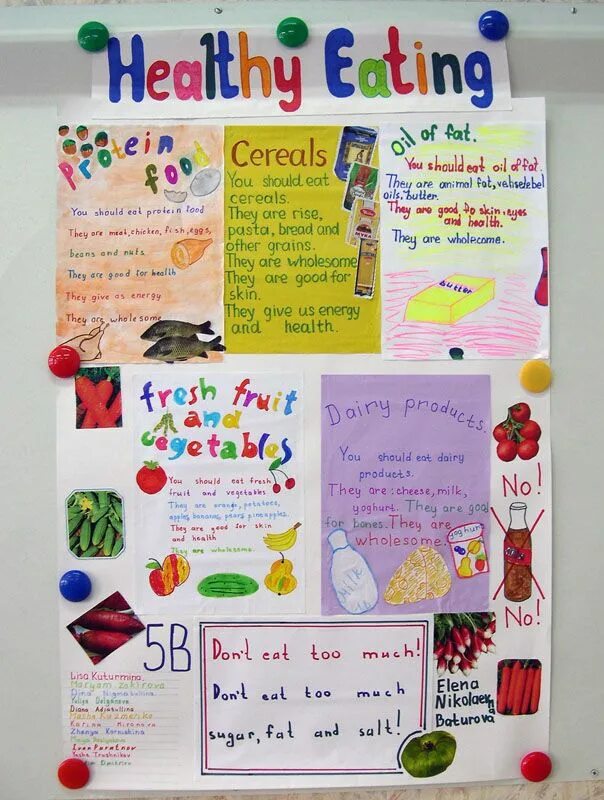 Healthy Eating
Protein
food
You should eat protein food
They are meat, chicken, fish, eggs,
beans and nuts
They are good for health
They give us energy
They are wholesome
Cereals
You should eat
cereals.
They are rise,
pasta, bread and
other grains.
They are wholesome
They are good for
skin.
They give us energy
and health.
Oil of fat.
You should eat oil of fat.
They are animal fat,
oils, butter.
They are good to skin, eyes
and health.
They are wholecome.
butter
fresh fruit
and
vegetables
You should eat fresh
fruit and vegetables
They are orange, potatoes,
apples, bananas, pears, pineapples.
They are good for skin
and health
They are wholesome.
Dairy products.
You should eat dairy
products.
They are: cheese, milk,
yoghurt. They are good
for bones. They are
wholesome.
Milk
yoghurt
No!
No!
5B
Lisa Kuturmina
Maryam Zakirova
Dina Nigmatullina
Yuliya Dolganova
Diana Adiatullina
Masha Kuzmenko
Karina Mironova
Zhenya Kornishina
Ivan Puretnov
Yasha Trushnikov
Dimitriev
Don't eat too much!
Don't eat too much
sugar, fat and salt!
Elena
Nikolaevna
Baturova